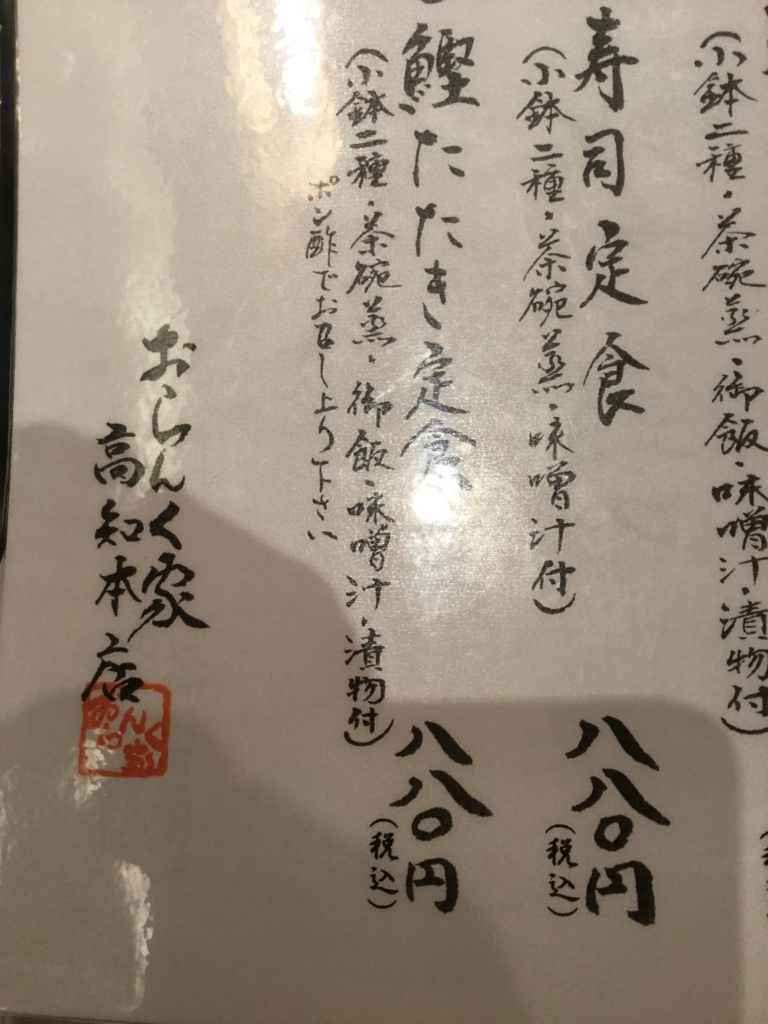 (小鉢二種・茶碗蒸・御飯・味噌汁・漬物付)
寿司定食
八八〇円
(小鉢二種・茶碗蒸・味噌汁付)
(税込)
鰹たたき定食
八八〇円
(小鉢二種・茶碗蒸・御飯・味噌汁・漬物付)
(税込)
ポン酢でお召し上り下さい
おらんく家
高知本店